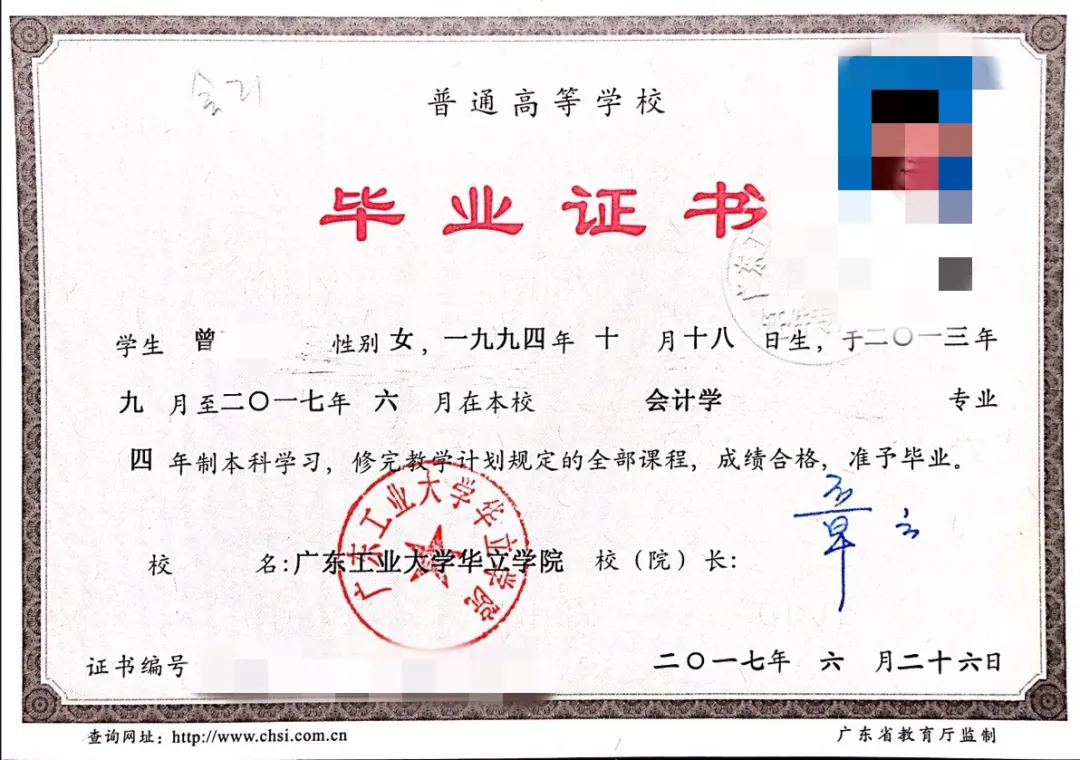 普通高等学校
毕业证书
学生 曾 性别 女，一九九四年 十 月十八 日生，于二〇一三年
九 月至二〇一七年 六 月在本校 会计学 专业
四 年制本科学习，修完教学计划规定的全部课程，成绩合格，准予毕业。
广东工业大学华立学院
校 名：广东工业大学华立学院 校（院）长：
证书编号 二〇一七年 六 月二十六日
查询网址：http://www.chsi.com.cn 广东省教育厅监制